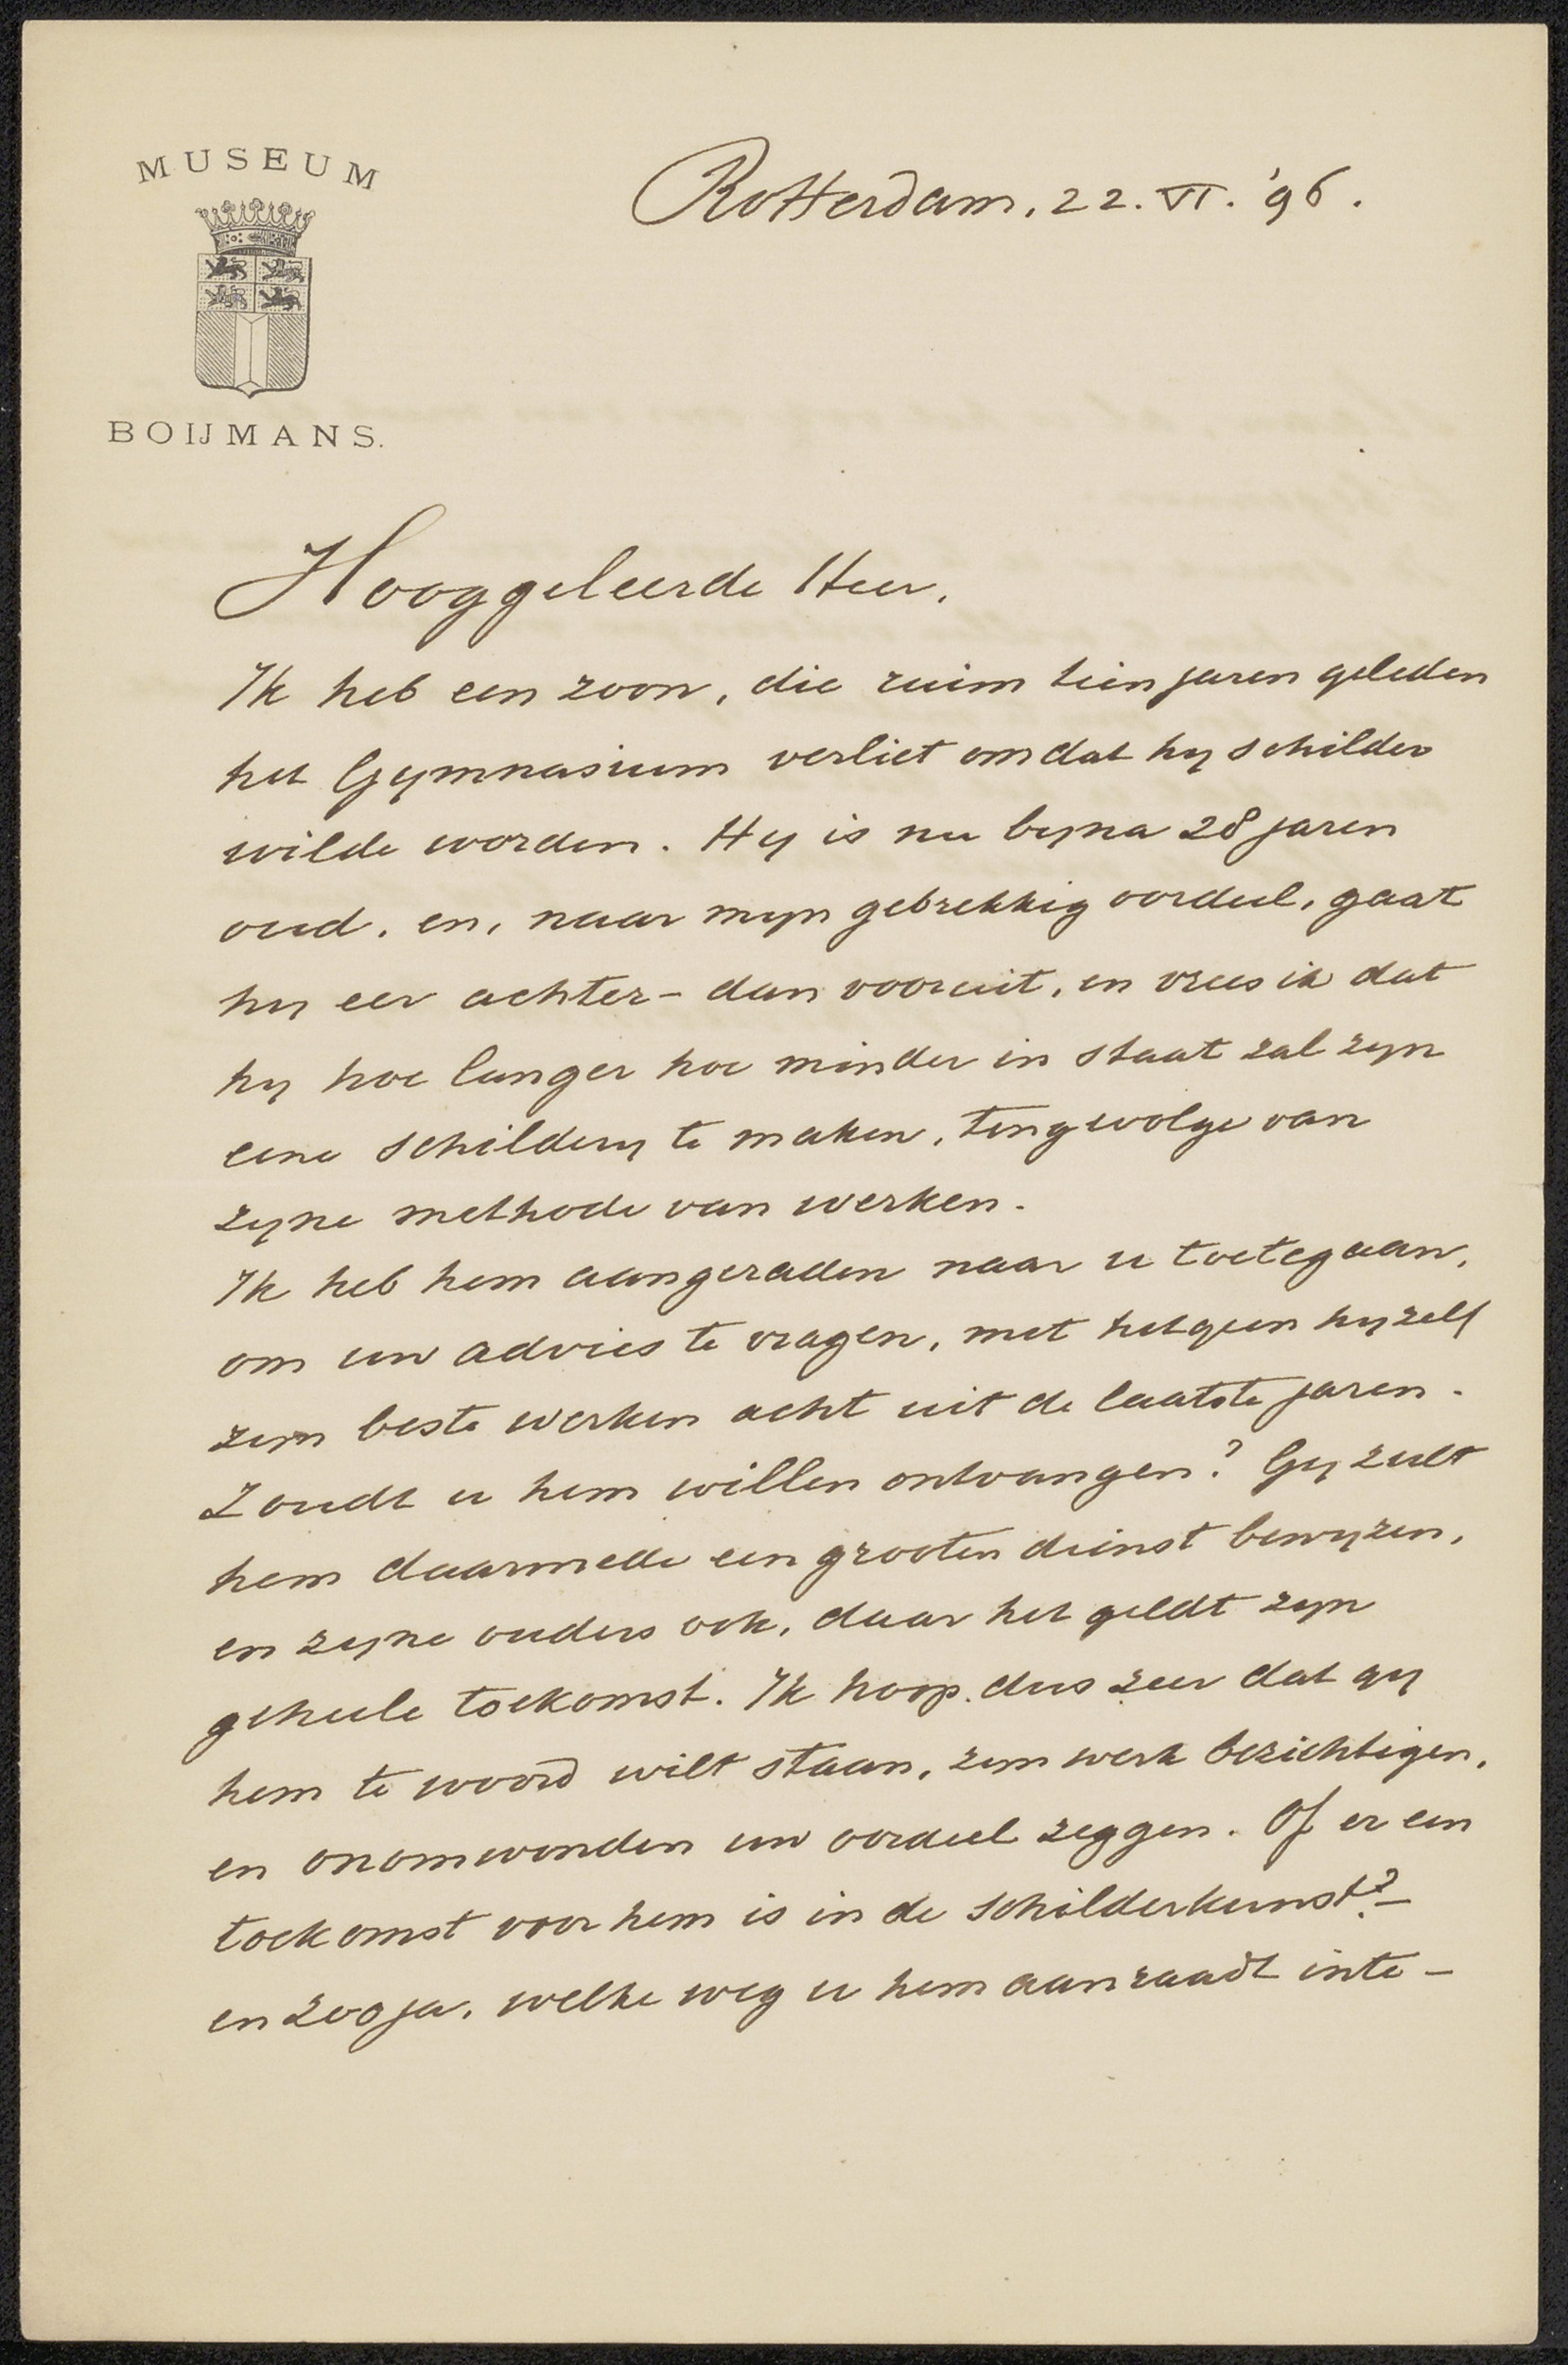 MUSEUM
BOIJMANS.
Rotterdam, 22. VI. '96.
Hooggeleerde Heer,
Ik heb een zoon, die ruim tien jaren geleden
het Gymnasium verliet omdat hy schilder
wilde worden. Hy is nu byna 28 jaren
oud, en, naar myn gebrekkig oordeel, gaat
hy eer achter- dan vooruit, en vrees ik dat
hy hoe langer hoe minder in staat zal zyn
eene schildery te maken, tengevolge van
zyne methode van werken.
Ik heb hem aangeraden naar u toetegaan,
om uw advies te vragen, met hetgeen hyzelf
zyn beste werken acht uit de laatste jaren.
Zoudt u hem willen ontvangen? Gy zult
hem daarmede een grooten dienst bewyzen,
en zyne ouders ook, daar het geldt zyn
geheele toekomst. Ik hoop dus zeer dat gy
hem te woord wilt staan, zyn werk bezichtigen,
en onomwonden uw oordeel zeggen. Of er een
toekomst voor hem is in de schilderkunst? –
en zoo ja, welke weg u hem aanraadt inte-